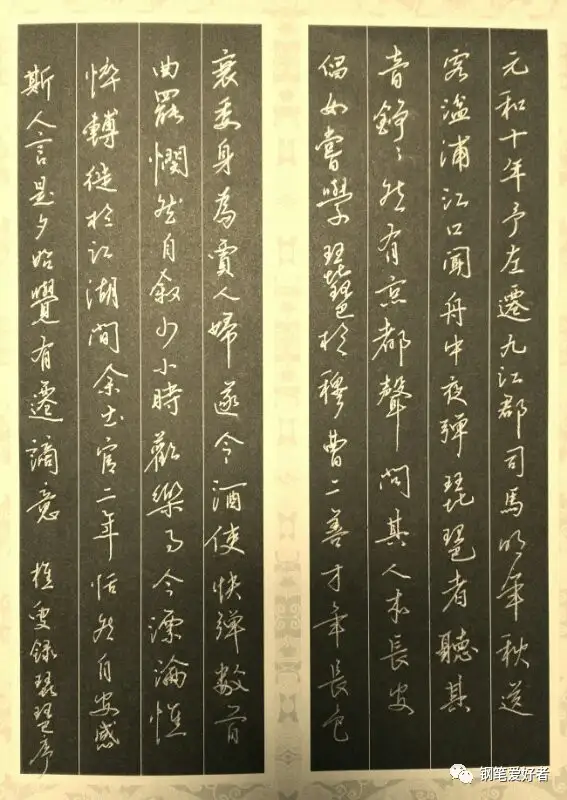 元和十年予左遷九江郡司馬明年秋送
客湓浦江口聞舟中夜彈琵琶者聽其
音錚々然有京都聲問其人本長安
倡女嘗學琵琶於穆曹二善才年長色
衰委身為賈人婦遂令酒使快彈數首
曲罷憫然自叙少小時歡樂事今漂淪憔
悴轉徙於江湖間余出官二年恬然自安感
斯人言是夕始覺有遷謫意 叟録琵琶序
钢笔爱好者